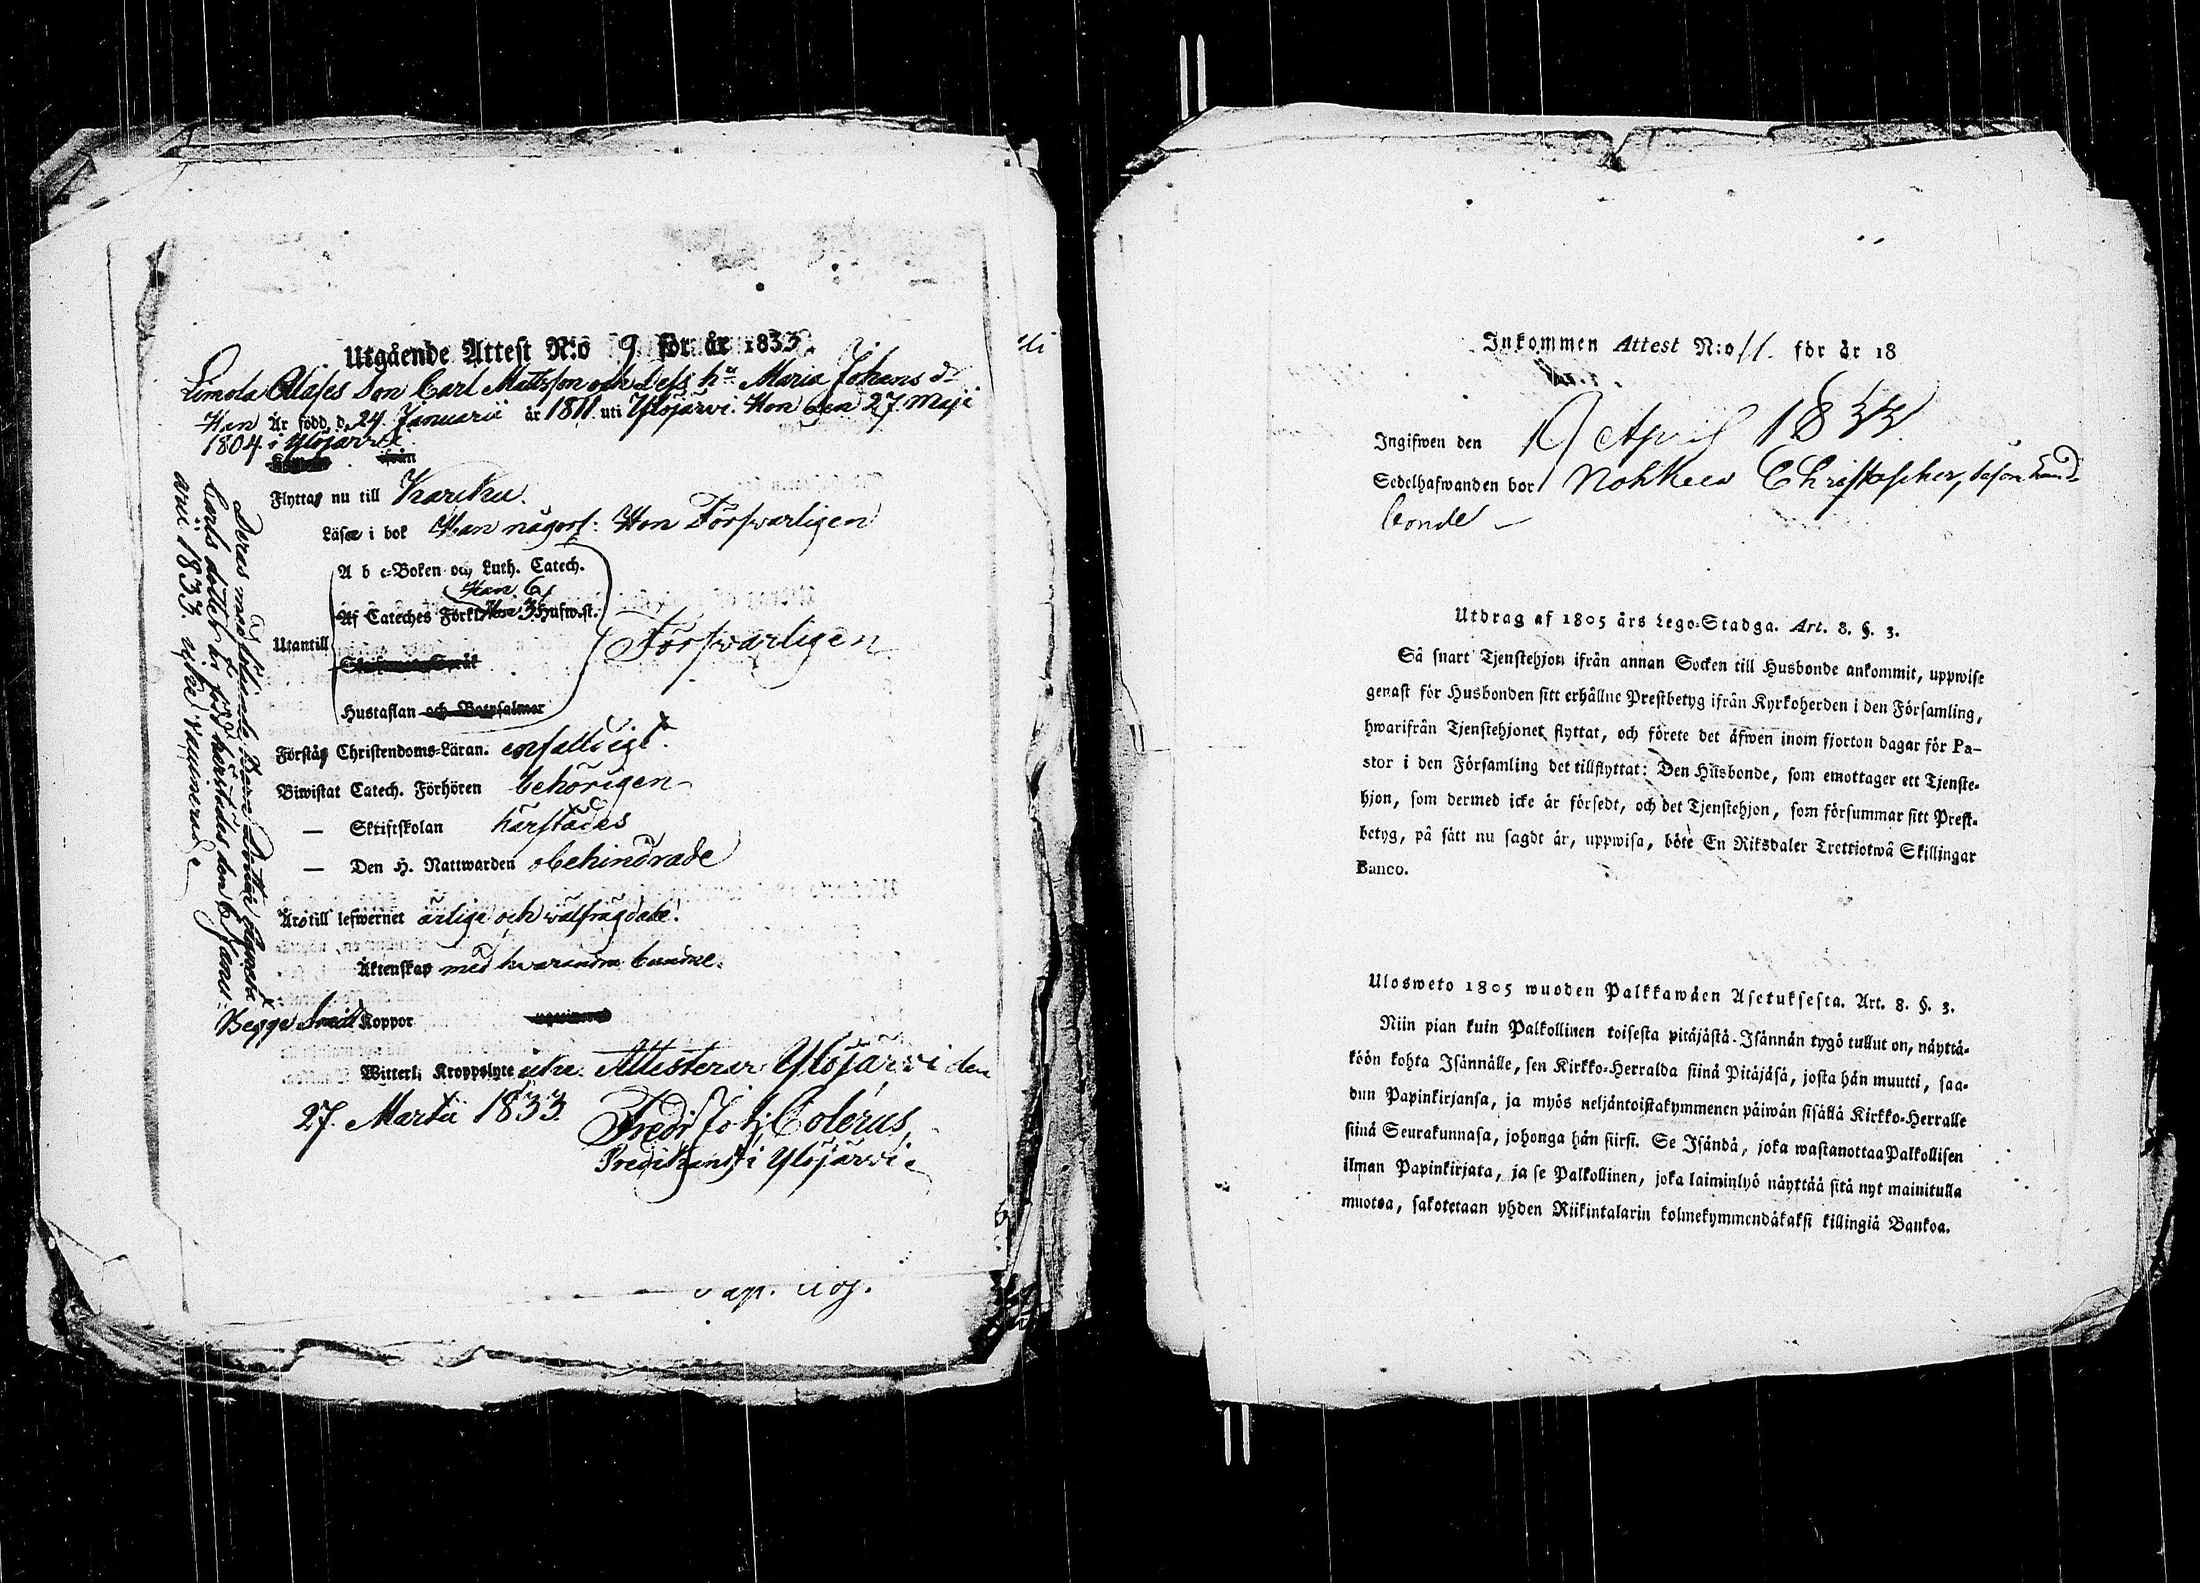 Utgående Attest N:o 9 för år 1833.
Limola Clases Son Carl Mattsson och Dess hu Maria Johans dr
Han Är född d. 24. Januarii år 1811. uti Ylöjärvi. Hon den 27. Maji
1804. i Ylöjärvi.
ifrån
Flyttar nu till Karku.
Läser i bok Han någorl: Hon Försvarligen
A b c-Boken och Luth. Catech.
Han 6,
Af Cateches Förkl. Hon 3. Husw.st.
Utantill
Försvarligen
Skriftenes Språk
Hustaflan och Botpsalmer
Förstår Christendoms-Läran. enfalldigt.
Biwistat Catech. Förhören behörigen
— Skriftskolan härstädes
— Den H. Nattwarden obehindrade
Äro till lefwernet ärlige och wälfrägdade.
Äktenskap med hvarandra bundne.
Begge haft Koppor
Witterl; Kroppslyte icke. Attesterar Ylöjärvi den
27. Martii 1833. Fredr Joh; Colerus,
Predikant i Ylöjärvi
Deras medföljande Barn Dottern
Carls dotter är född härstädes den 6 Janu-
arii 1833. icke Vaccinerade
Inkommen Attest N:o 11. för år 18
Ingifwen den 19 April 1833
Sedelhafwanden bor Nohkua Christopher,
bonde
Utdrag af 1805 års Lego-Stadga. Art. 8. §. 3.
Så snart Tjenstehjon ifrån annan Socken till Husbonde ankommit, uppwise
genast för Husbonden sitt erhållne Prestbetyg ifrån Kyrkoherden i den Församling,
hwarifrån Tjenstehjonet flyttat, och förete det äfwen inom fjorton dagar för Pa-
stor i den Församling det tillflyttat: Den Husbonde, som emottager ett Tjenste-
hjon, som dermed icke är försedt, och det Tjenstehjon, som försummar sitt Prest-
betyg, på sätt nu sagdt är, uppwisa, böte En Riksdaler Trettiotwå Skillingar
Banco.
Ulosweto 1805 wuoden Palkkawäen Asetuksesta. Art. 8. §. 3.
Niin pian kuin Palkollinen toisesta pitäjästä Isännän tygö tullut on, näyttä-
köön kohta Isännälle, sen Kirkko-Herralda siinä Pitäjäsä, josta hän muutti, saa-
dun Papinkirjansa, ja myös neljäntoistakymmenen päiwän sisällä Kirkko-Herralle
siinä Seurakunnasa, johonga hän siirsi. Se Isändä, joka wastanottaa Palkollisen
ilman Papinkirjata, ja se Palkollinen, joka laiminlyö näyttää sitä nyt mainitulla
muotoa, sakotetaan yhden Riikintalarin kolmekymmendäkaksi killingiä Bankoa.